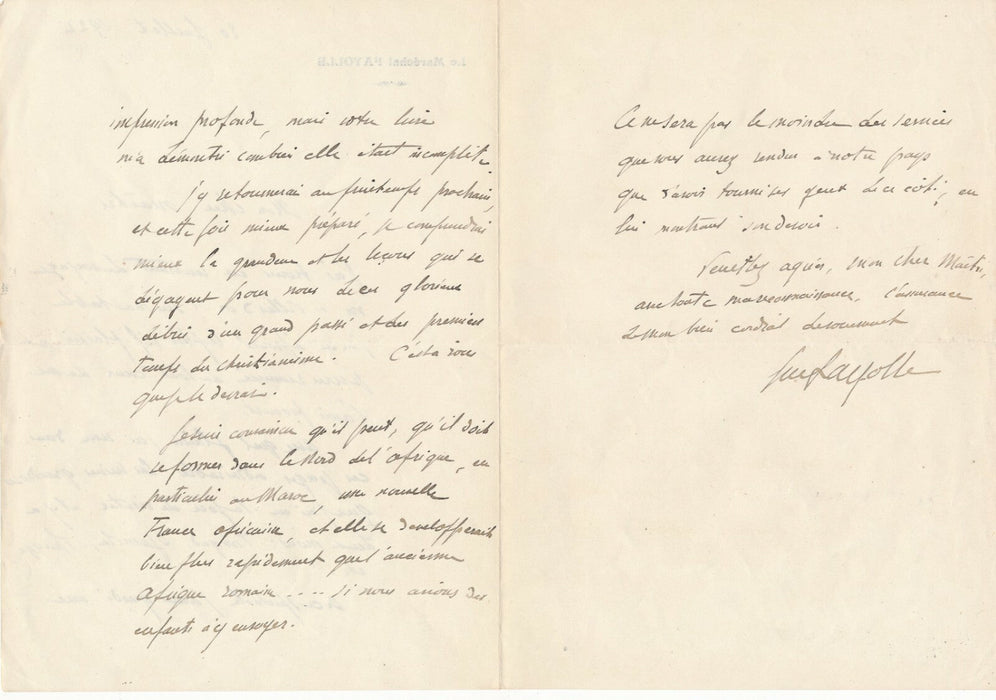 impression profonde, mais votre livre
m'a démontré combien elle était incomplète.
J'y retournerai au printemps prochain,
et cette fois mieux préparé, je comprendrai
mieux la grandeur et les leçons qui se
dégagent pour nous de ces glorieux
débris d'un grand passé et des premiers
temps du christianisme. C'est à vous
que je le devrai.
Je suis convaincu qu'il peut, qu'il doit
se former dans le Nord de l'Afrique, en
particulier au Maroc, une nouvelle
France africaine, et elle se développerait
bien plus rapidement que l'ancienne
Afrique romaine .... si nous avions des
enfants à y envoyer.
Ce ne sera pas le moindre des services
que vous aurez rendus à notre pays
que d'avoir tourné ses yeux de ce côté, en
lui montrant son devoir.
Veuillez agréer, mon cher Maître,
avec toute ma reconnaissance, l'assurance
de mon bien cordial dévouement
Fayolle
Le Maréchal FAYOLLE